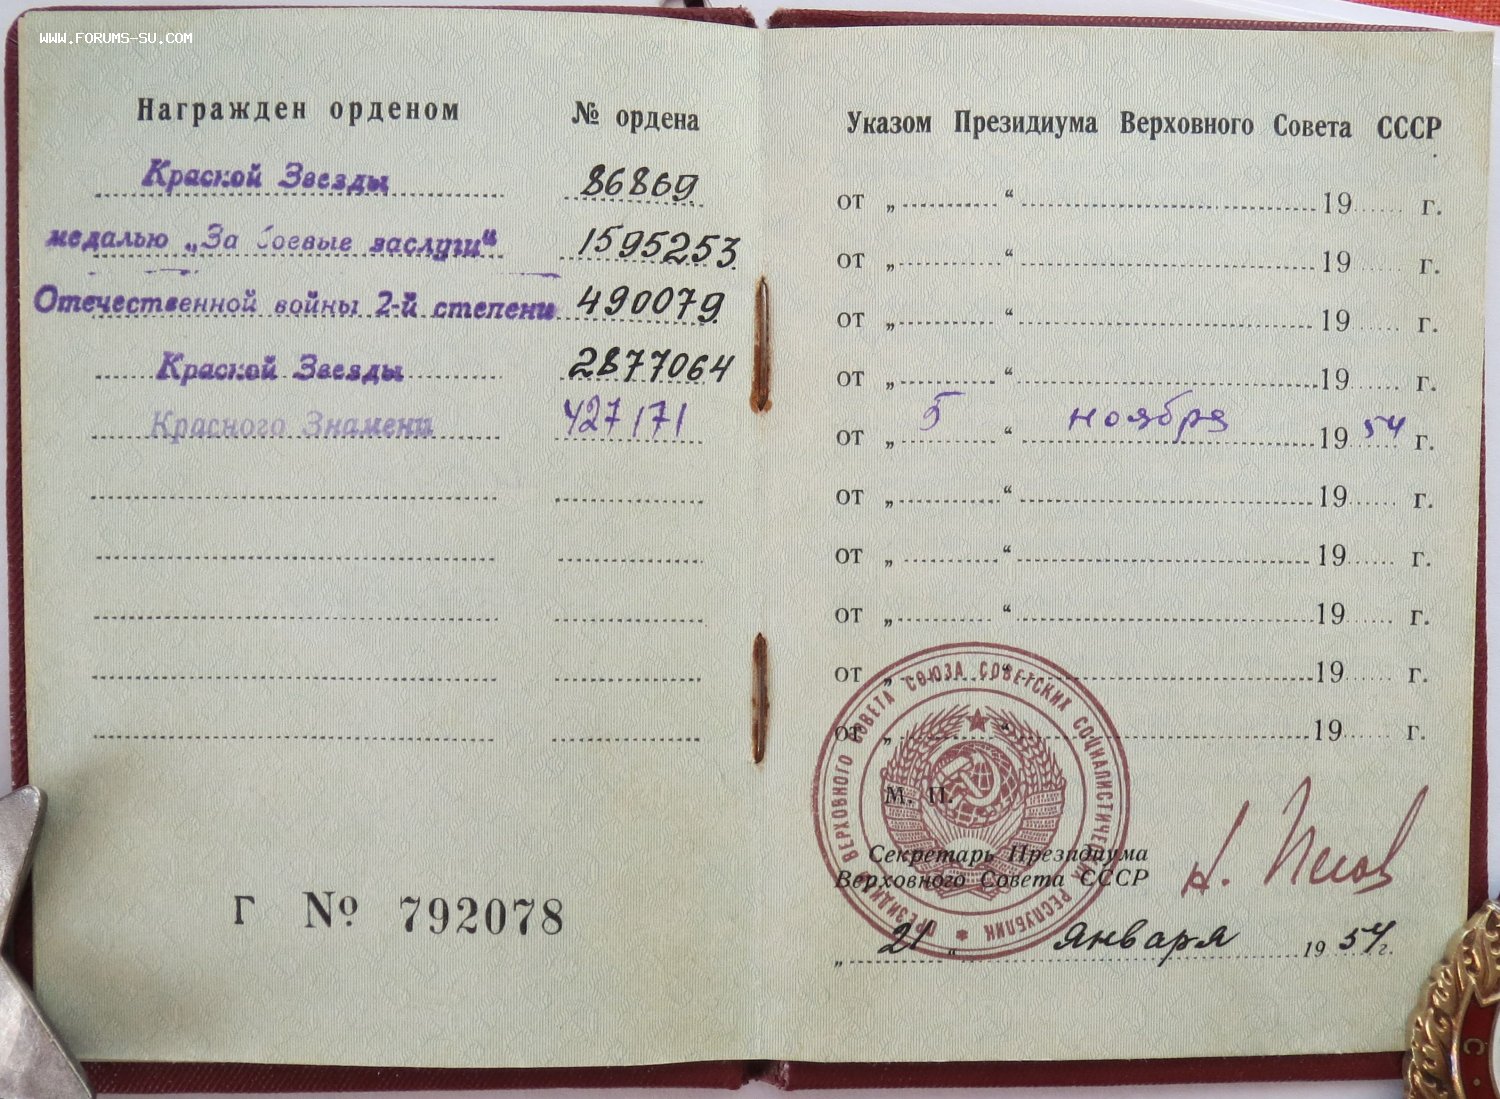 www.forums-su.com
Награжден орденом № ордена
Красной Звезды 86869
медалью „За боевые заслуги“ 1595253
Отечественной войны 2-й степени 490079
Красной Звезды 2877064
Красного Знамени 427171
Г № 792078
Указом Президиума Верховного Совета СССР
от „ “ 19 г.
от „ “ 19 г.
от „ “ 19 г.
от „ “ 19 г.
от „ 5 “ ноября 19 54 г.
от „ “ 19 г.
от „ “ 19 г.
от „ “ 19 г.
от „ “ 19 г.
от „ “ 19 г.
ПРЕЗИДИУМ ВЕРХОВНОГО СОВЕТА СОЮЗА СОВЕТСКИХ СОЦИАЛИСТИЧЕСКИХ РЕСПУБЛИК
М. П.
Секретарь Президиума
Верховного Совета СССР
„ 21 “ января 19 54 г.